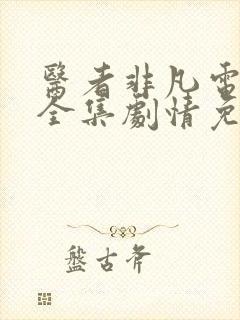 醫者非凡電
全集劇情免
盤古斧